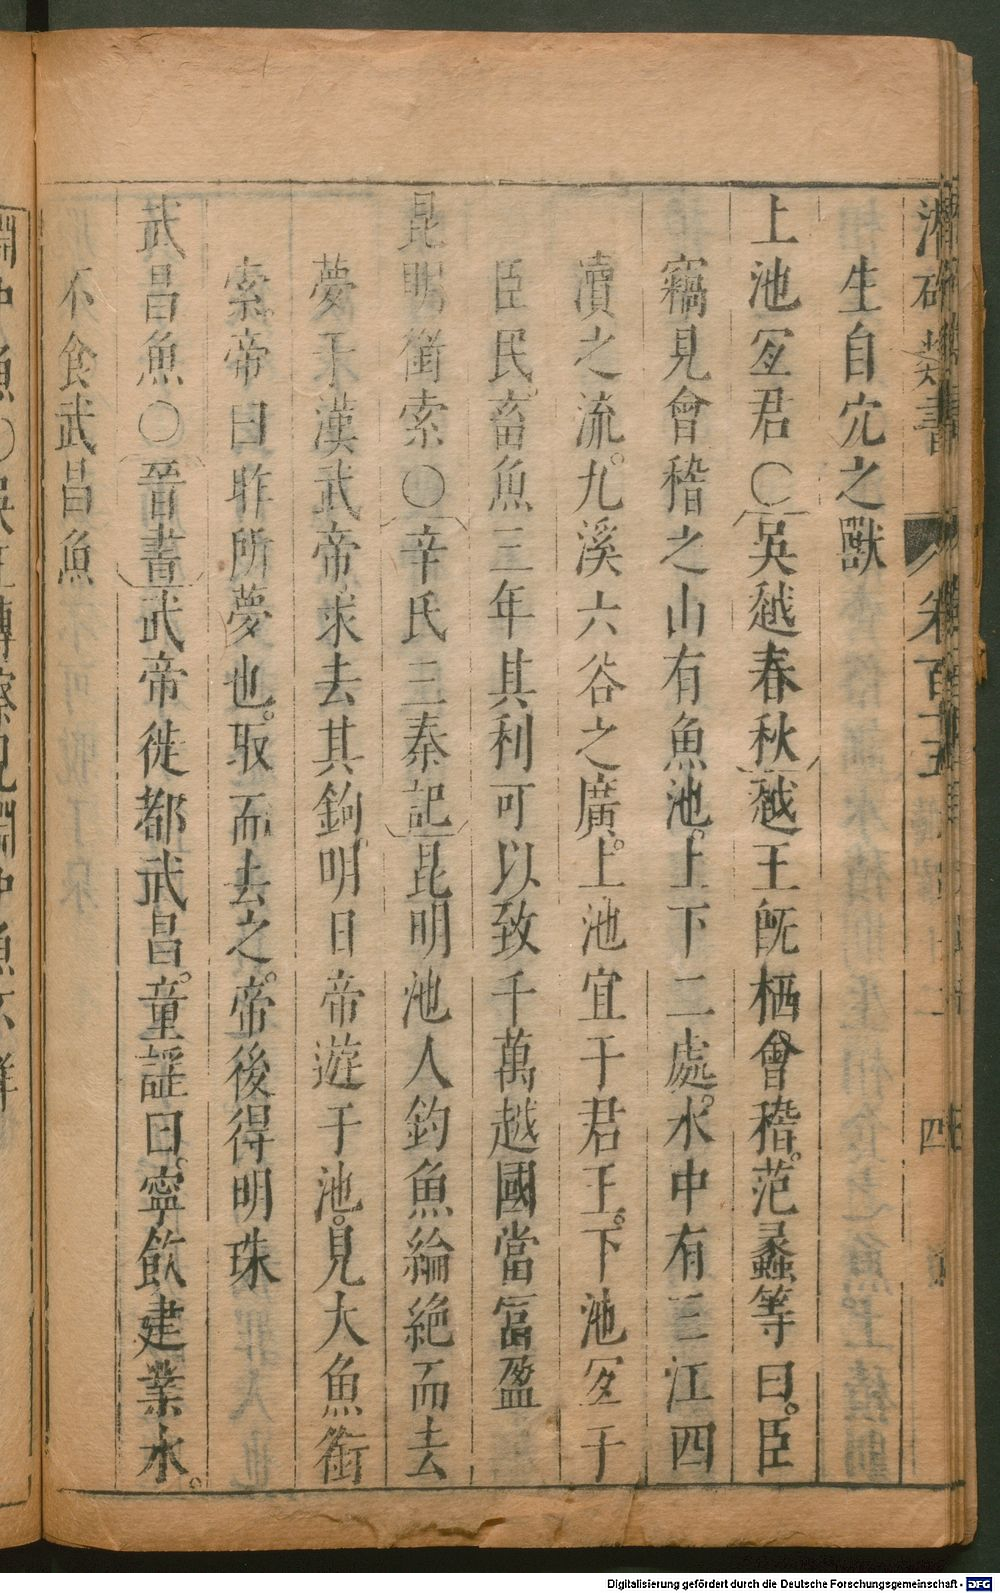 潛確類書 卷百五 四
生自宂之獸
上池宐君○吳越春秋越王旣栖會稽。范蠡等曰。臣
竊見會稽之山有魚池。上下二處。水中有三江四
瀆之流。九溪六谷之廣。上池宜于君王。下池宐于
臣民。畜魚三年其利可以致千萬越國當富盈
昆明銜索○辛氏三秦記昆明池人釣魚綸絶而去
夢于漢武帝求去其鉤。明日帝遊于池。見大魚銜
索。帝曰昨所夢也。取而去之。帝後得明珠
武昌魚○晉書武帝徙都武昌。童謡曰。寧飲建業水。
不食武昌魚
Digitalisierung gefördert durch die Deutsche Forschungsgemeinschaft - DFG